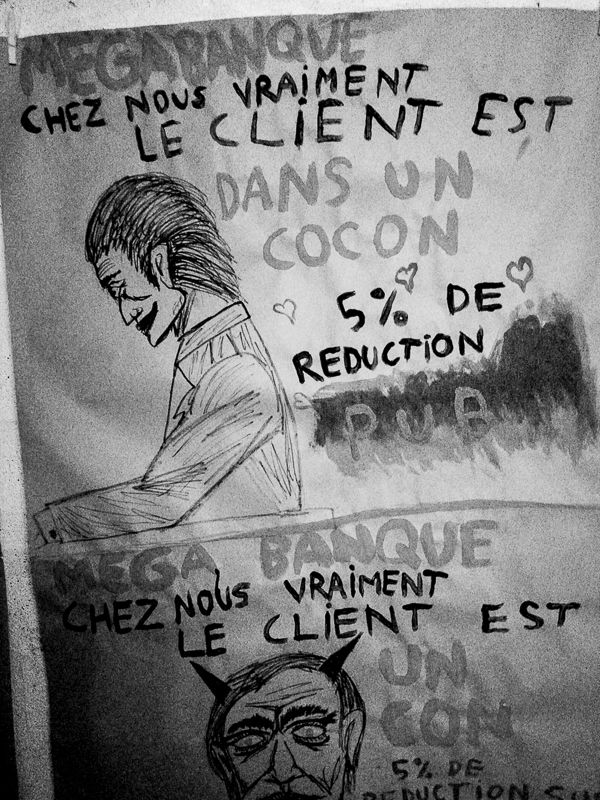 MEGABANQUE
CHEZ NOUS VRAIMENT
LE CLIENT EST
DANS UN
COCON
5% DE
REDUCTION
PUB
MEGA BANQUE
CHEZ NOUS VRAIMENT
LE CLIENT EST
UN
CON
5% DE
REDUCTION SUR